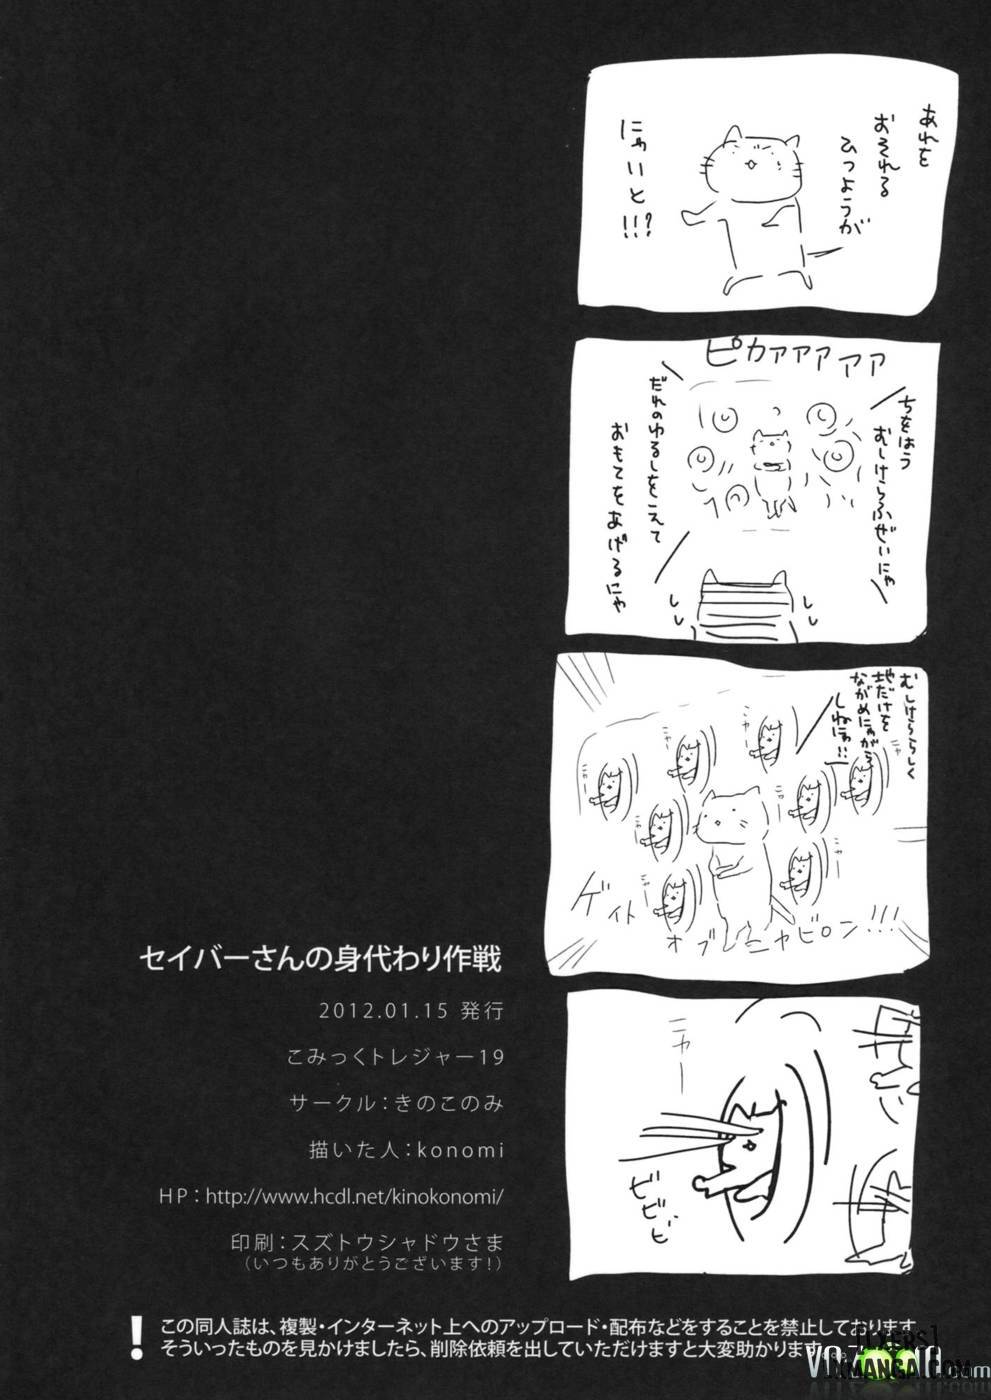 あれを
おそれる
ひつようが
にゃいと!!!?
ピカァァァァァ
ちをはう
むしけらふぜいにゃ
だれのゆるしをこえて
おもてをあげるにゃ
むしけららしく
地だけを
ながめにゃがら
しねにゃ!!
ニャー
ニャー
ニャー
ニャー
ニャー
ニャー
ニャー
ニャー
ゲイト
オブ
ニャビロン!!!
ニャー
ビビビ
セイバーさんの身代わり作戦
2012.01.15 発行
こみっくトレジャー19
サークル:きのこのみ
描いた人:konomi
HP:http://www.hcdl.net/kinokonomi/
印刷:スズトウシャドウさま
(いつもありがとうございます!)
! この同人誌は、複製・インターネット上へのアップロード・配布などをすることを禁止しております。
そういったものを見かけましたら、削除依頼を出していただけますと大変助かります
[LYERS]
XMANGA.COM
.com